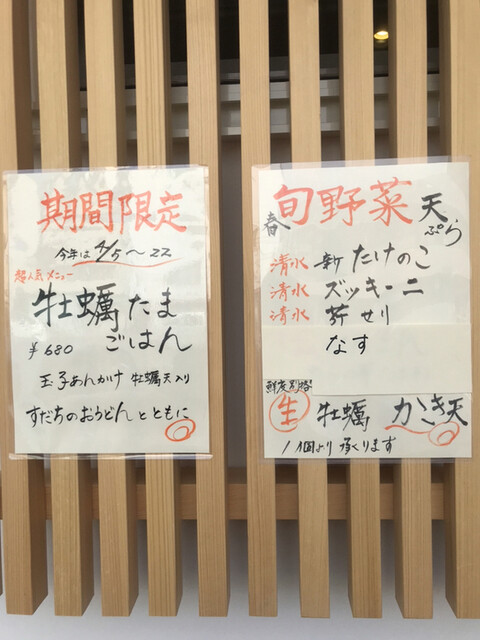 期間限定
今年は4/5〜22
超人気メニュー
牡蠣たま
ごはん
¥680
玉子あんかけ 牡蠣天入り
すだちのおうどんとともに
春 旬野菜 天ぷら
清水 新たけのこ
清水 ズッキーニ
清水 芹せり
なす
鮮度別格
生 牡蠣 かき天
1個より承ります